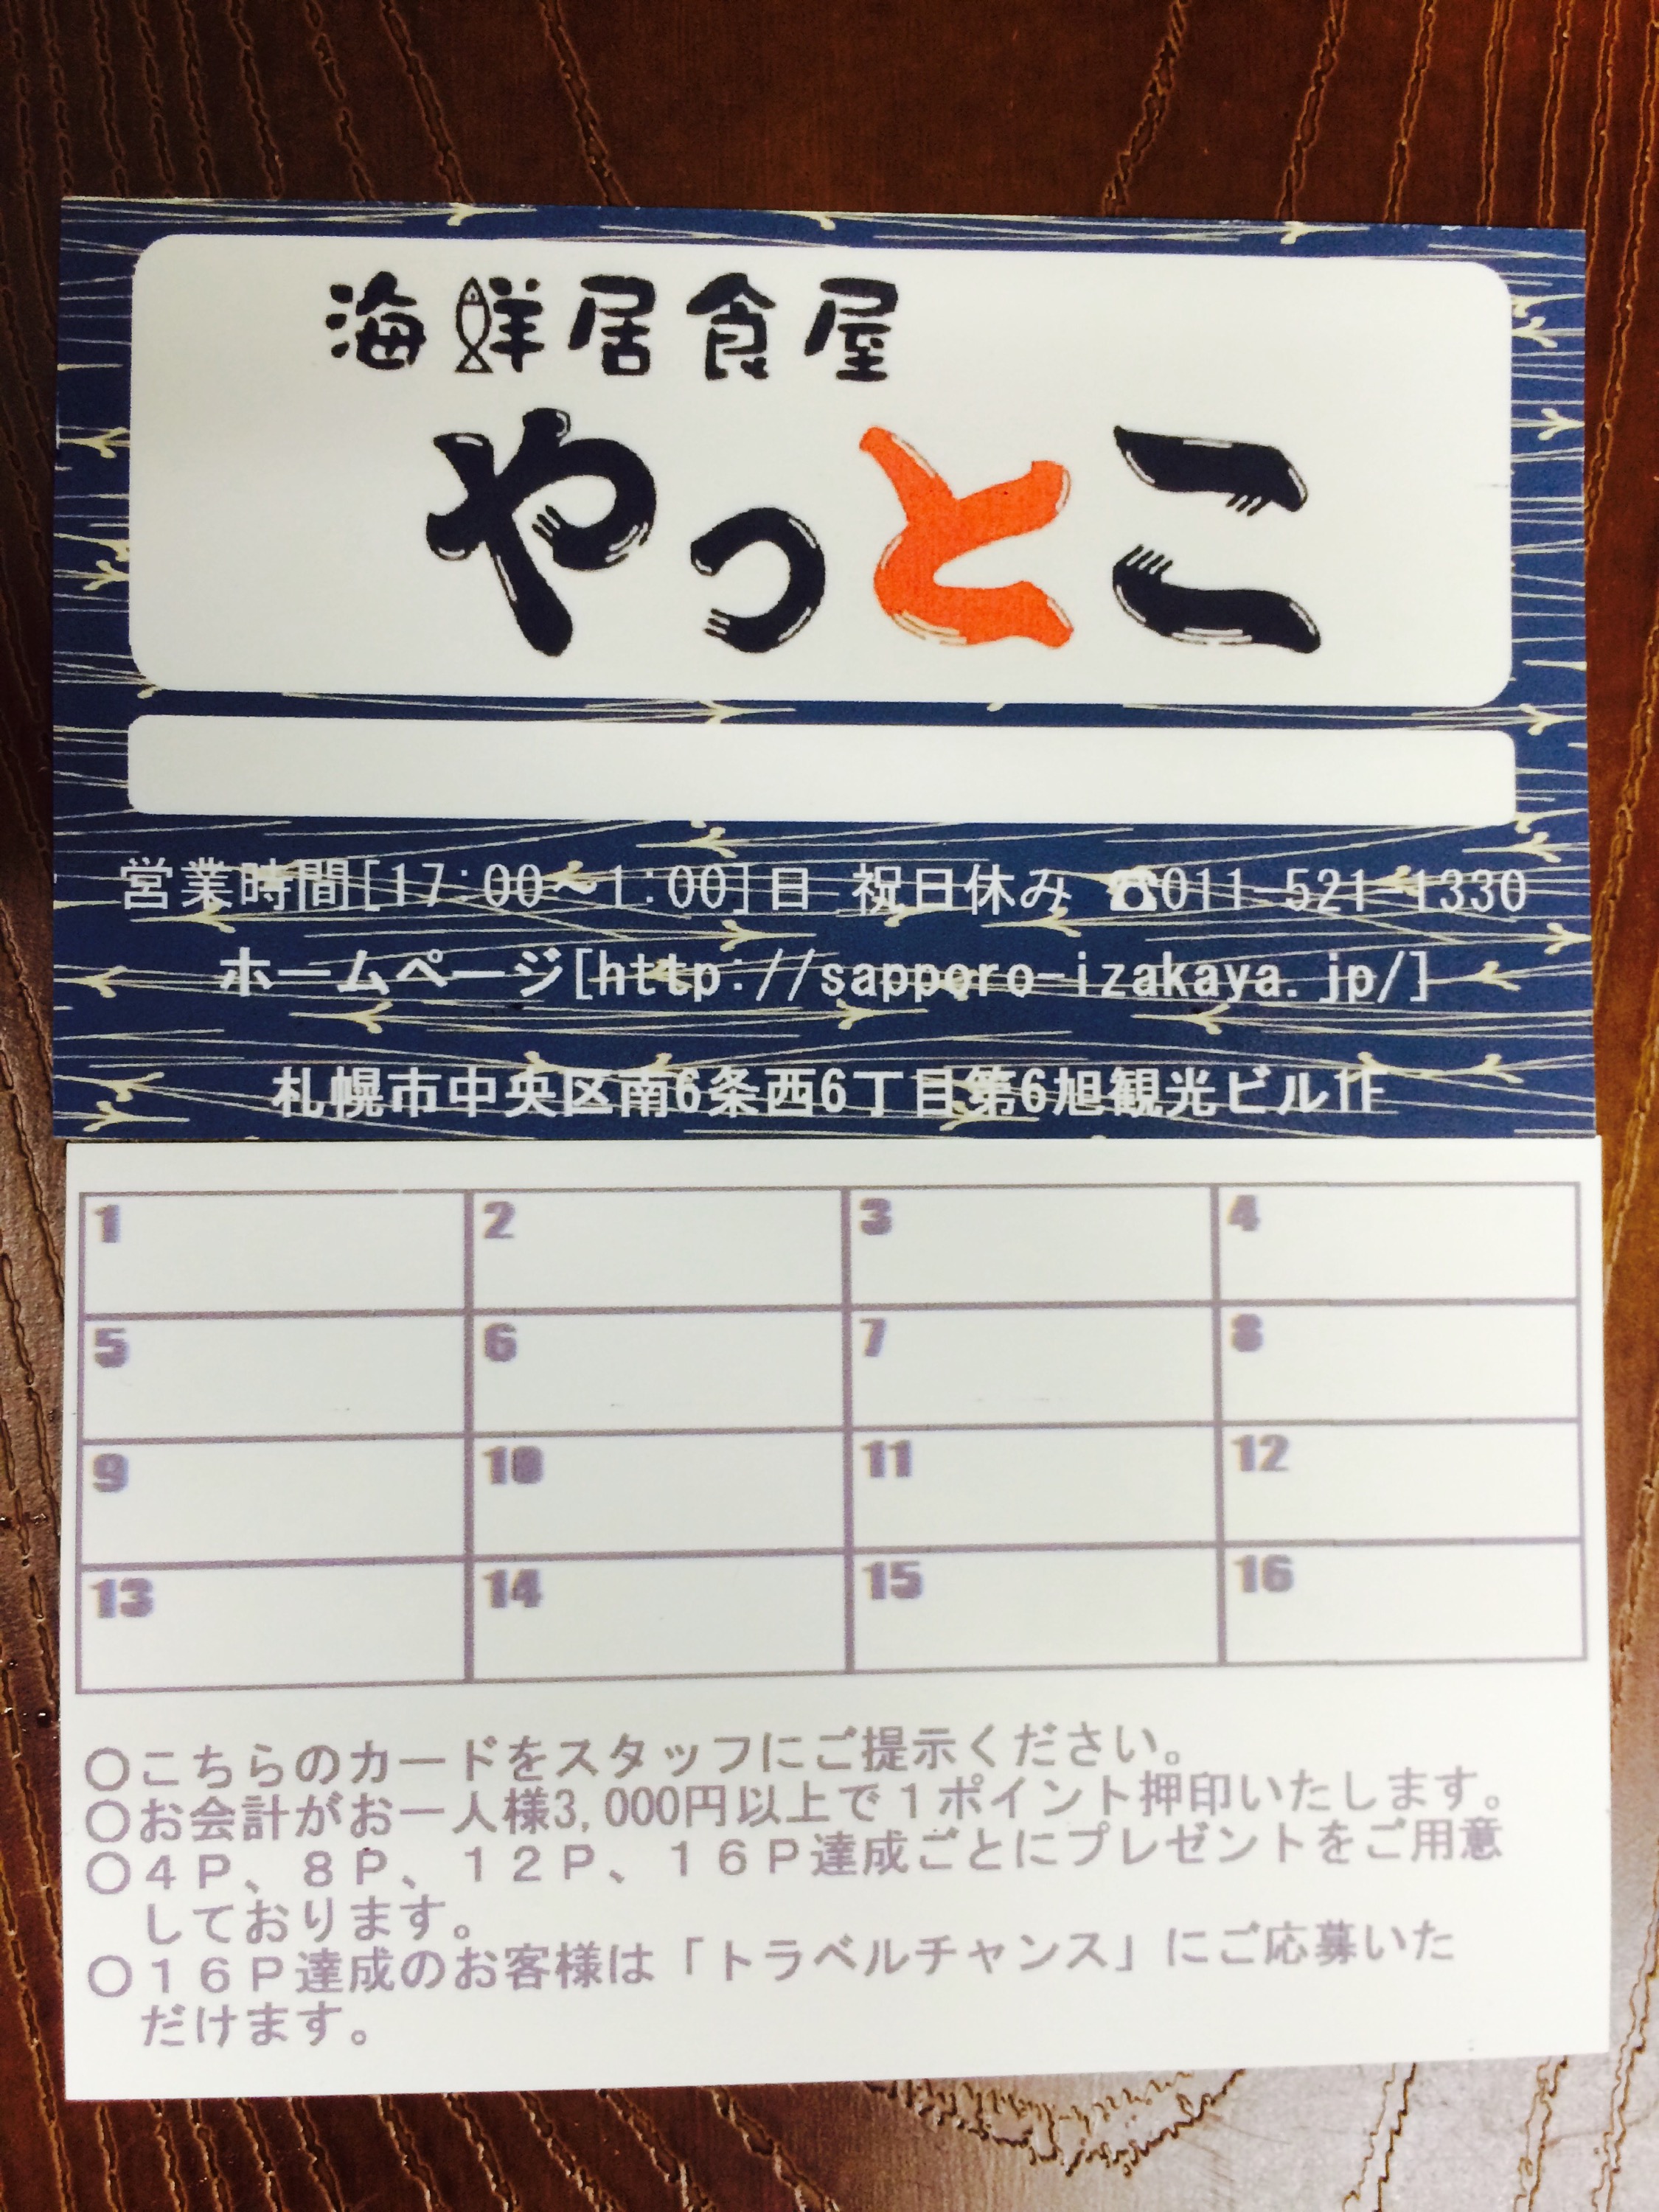 海鮮居食屋
やっとこ
営業時間[17:00～1:00]日 祝日休み ☎011-521-1330
ホームページ[http://sapporo-izakaya.jp/]
札幌市中央区南6条西6丁目第6旭観光ビル1F
1 2 3 4
5 6 7 8
9 10 11 12
13 14 15 16
○こちらのカードをスタッフにご提示ください。
○お会計がお一人様3,000円以上で１ポイント押印いたします。
○４Ｐ、８Ｐ、１２Ｐ、１６Ｐ達成ごとにプレゼントをご用意
しております。
○１６Ｐ達成のお客様は「トラベルチャンス」にご応募いた
だけます。